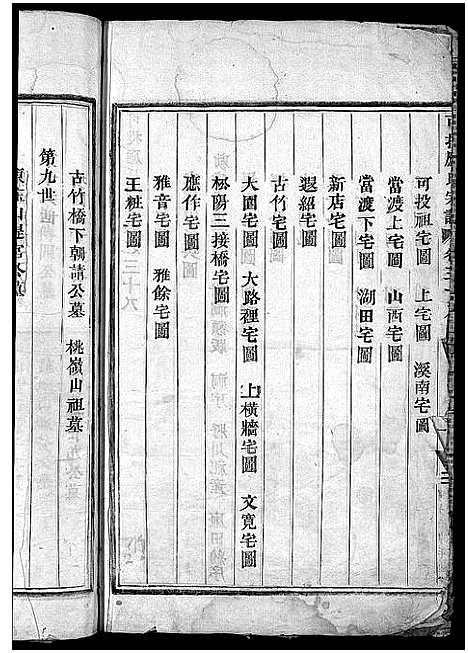 可投祖宅圖　上宅圖　溪南宅圖
當渡上宅圖　山西宅圖
當渡下宅圖　湖田宅圖
新店宅圖
遐紹宅圖
古竹宅圖
大園宅圖　大路裡宅圖　上橫牆宅圖　文寬宅圖
三接橋宅圖
應作宅圖
雅音宅圖　雅餘宅圖
王粧宅圖
古竹橋下朝請公墓　桃嶺山祖墓
第九世